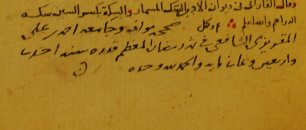 وقال الفارابي في ديوان الادب السك المسمار والسكة بكسر السين سكة
الدراهم والله اعلم صححه مولفه وجامعه احمد بن علي
المقريزي الشافعي في شهر رمضان المعظم قدره سنة احدى
واربعين وثمان مايه والحمد لله وحده